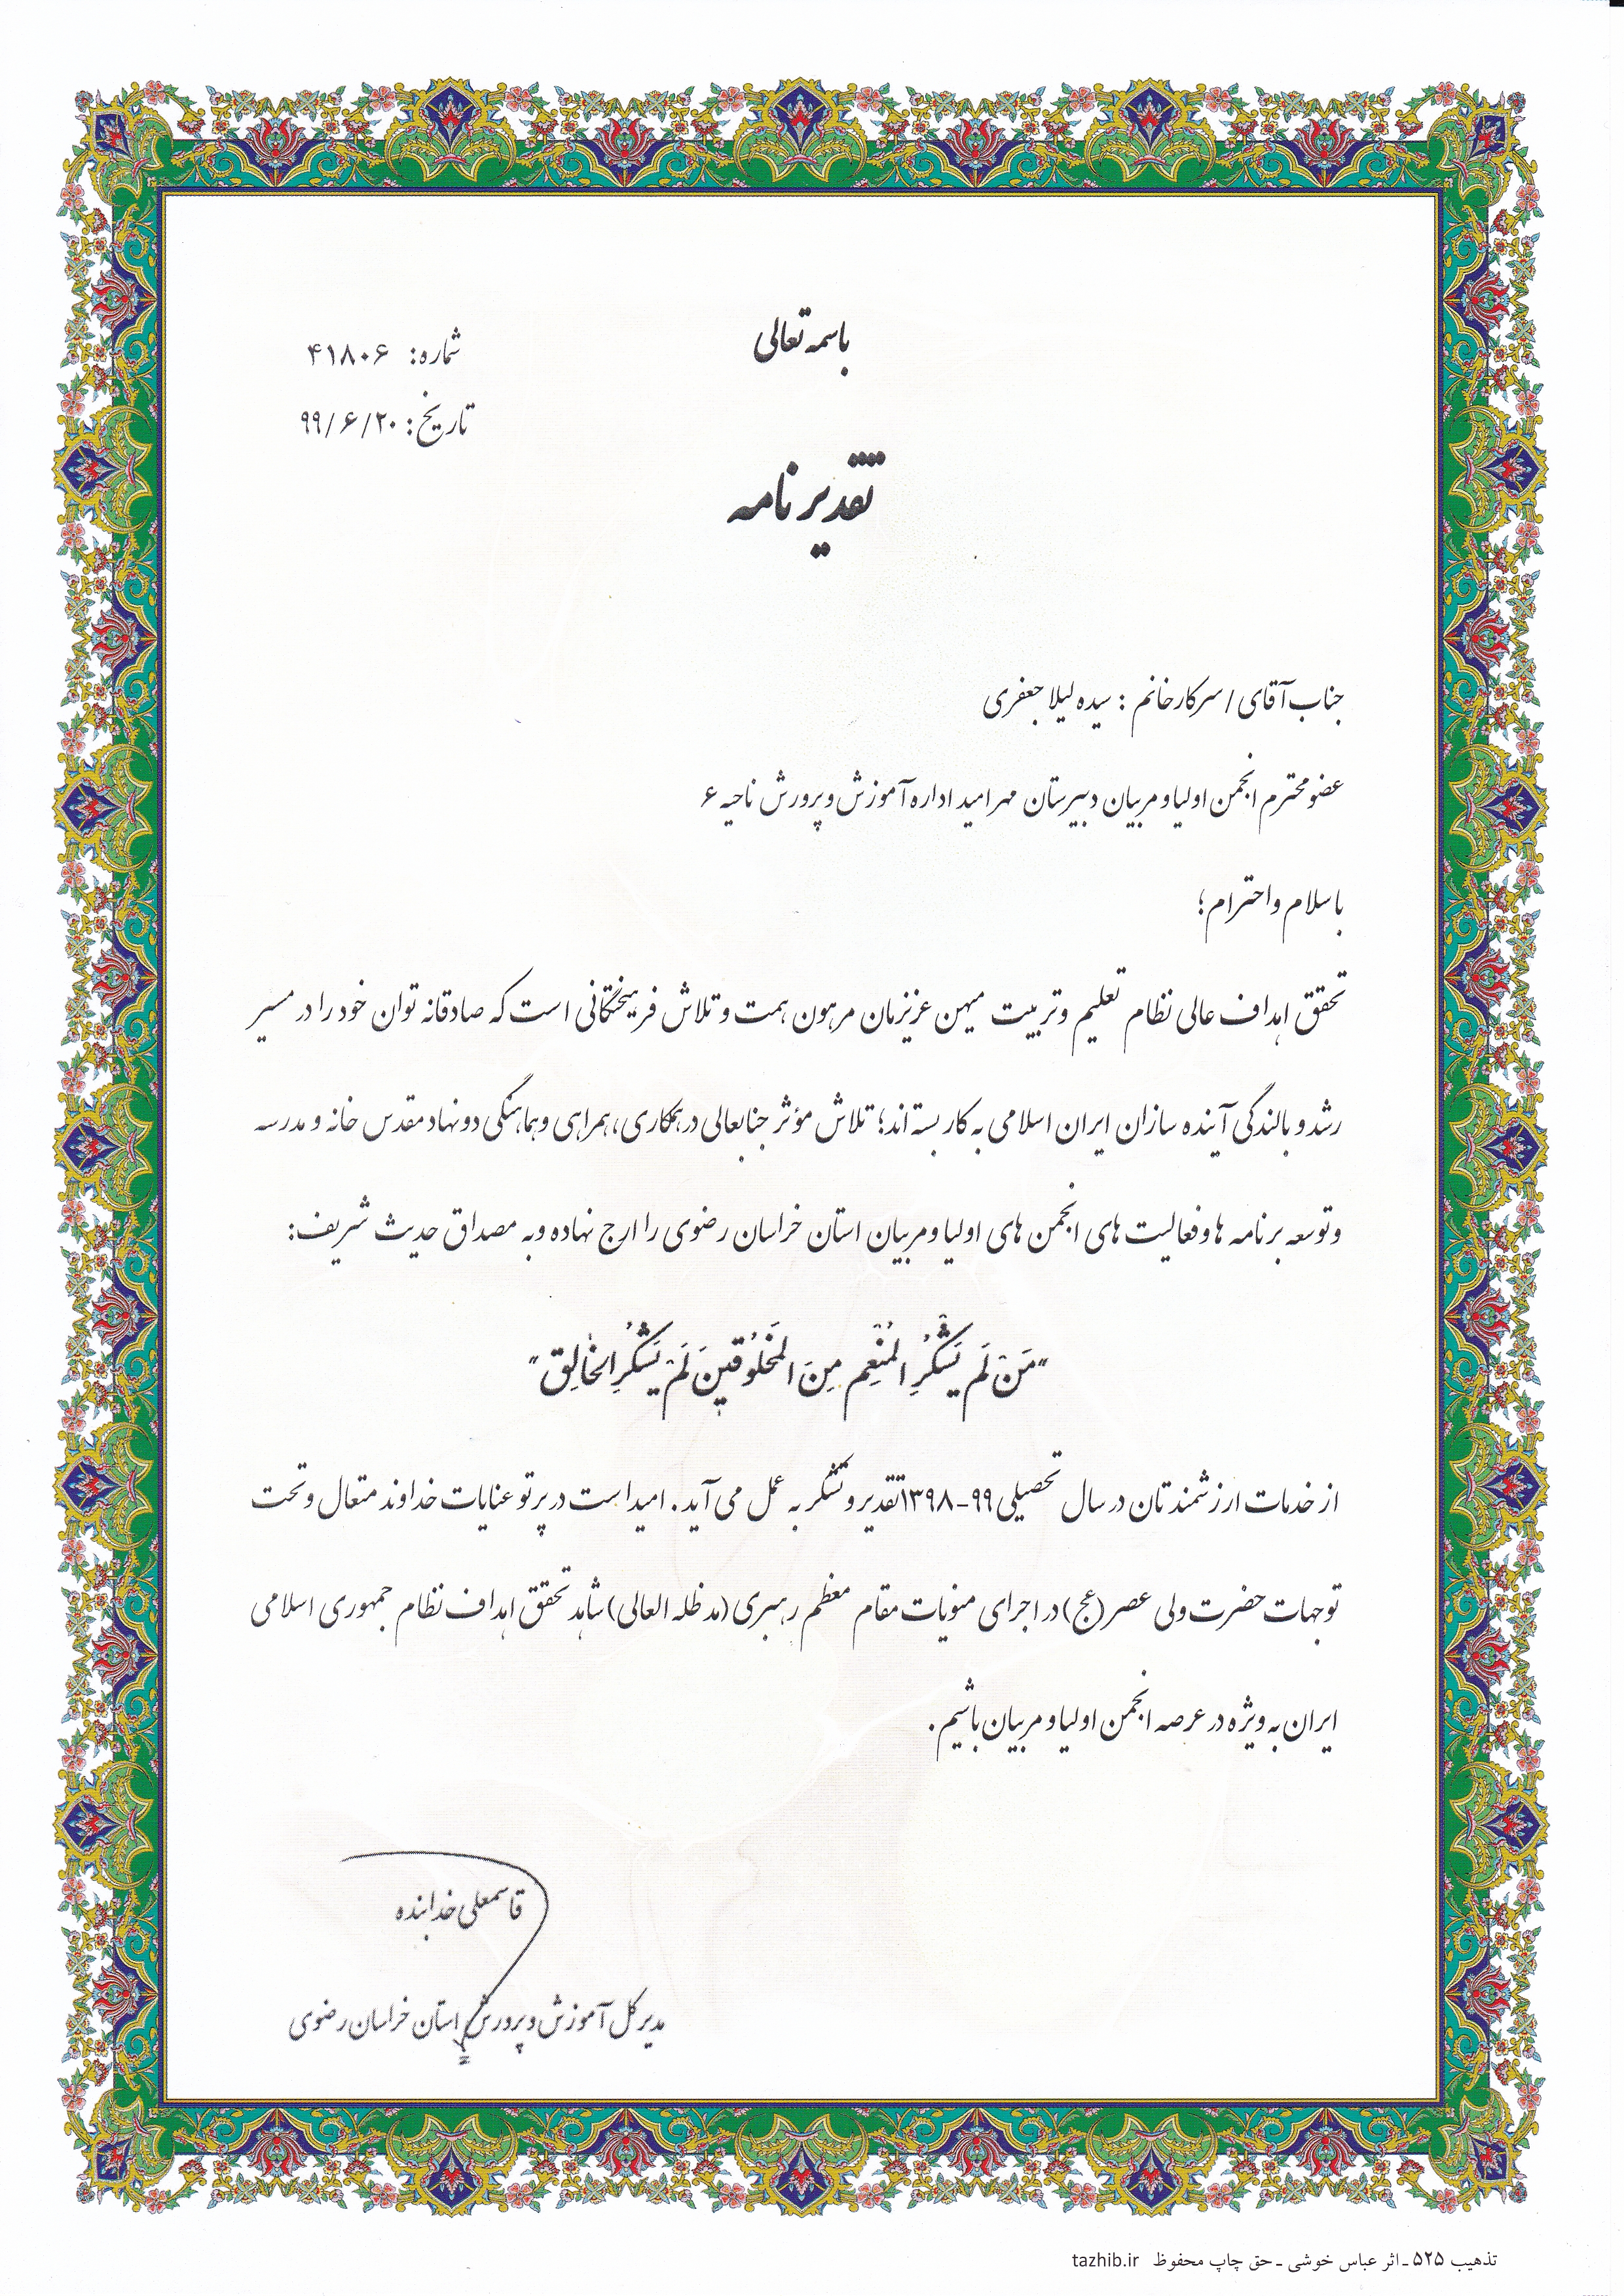 باسمه تعالی
شماره: ۴۱۸۰۶
تاریخ: ۹۹/۶/۲۰
تقدیرنامه
جناب آقای / سرکارخانم : سیده لیلا جعفری
عضو محترم انجمن اولیا و مربیان دبیرستان مهر امید اداره آموزش و پرورش ناحیه ۶
با سلام و احترام؛
تحقق اهداف عالی نظام تعلیم و تربیت میهن عزیزمان مرهون همت و تلاش فرهیختگانی است که صادقانه توان خود را در مسیر
رشد و بالندگی آینده سازان ایران اسلامی به کار بسته اند؛ تلاش مؤثر جنابعالی در همکاری، همراهی و هماهنگی دو نهاد مقدس خانه و مدرسه
و توسعه برنامه ها و فعالیت های انجمن های اولیا و مربیان استان خراسان رضوی را ارج نهاده و به مصداق حدیث شریف:
"مَنْ لَم یَشْکُرِ المُنْعِمِ مِنَ المَخلُوقینَ لَمْ یَشکُرِ الخالِق"
از خدمات ارزشمندتان در سال تحصیلی ۹۹-۱۳۹۸ تقدیر و تشکر به عمل می آید. امید است در پرتو عنایات خداوند متعال و تحت
توجهات حضرت ولی عصر(عج) در اجرای منویات مقام معظم رهبری (مدظله العالی) شاهد تحقق اهداف نظام جمهوری اسلامی
ایران به ویژه در عرصه انجمن اولیا و مربیان باشیم.
قاسمعلی خدابنده
مدیرکل آموزش و پرورش استان خراسان رضوی
تذهیب ۵۲۵ ـ اثر عباس خوشی ـ حق چاپ محفوظ tazhib.ir